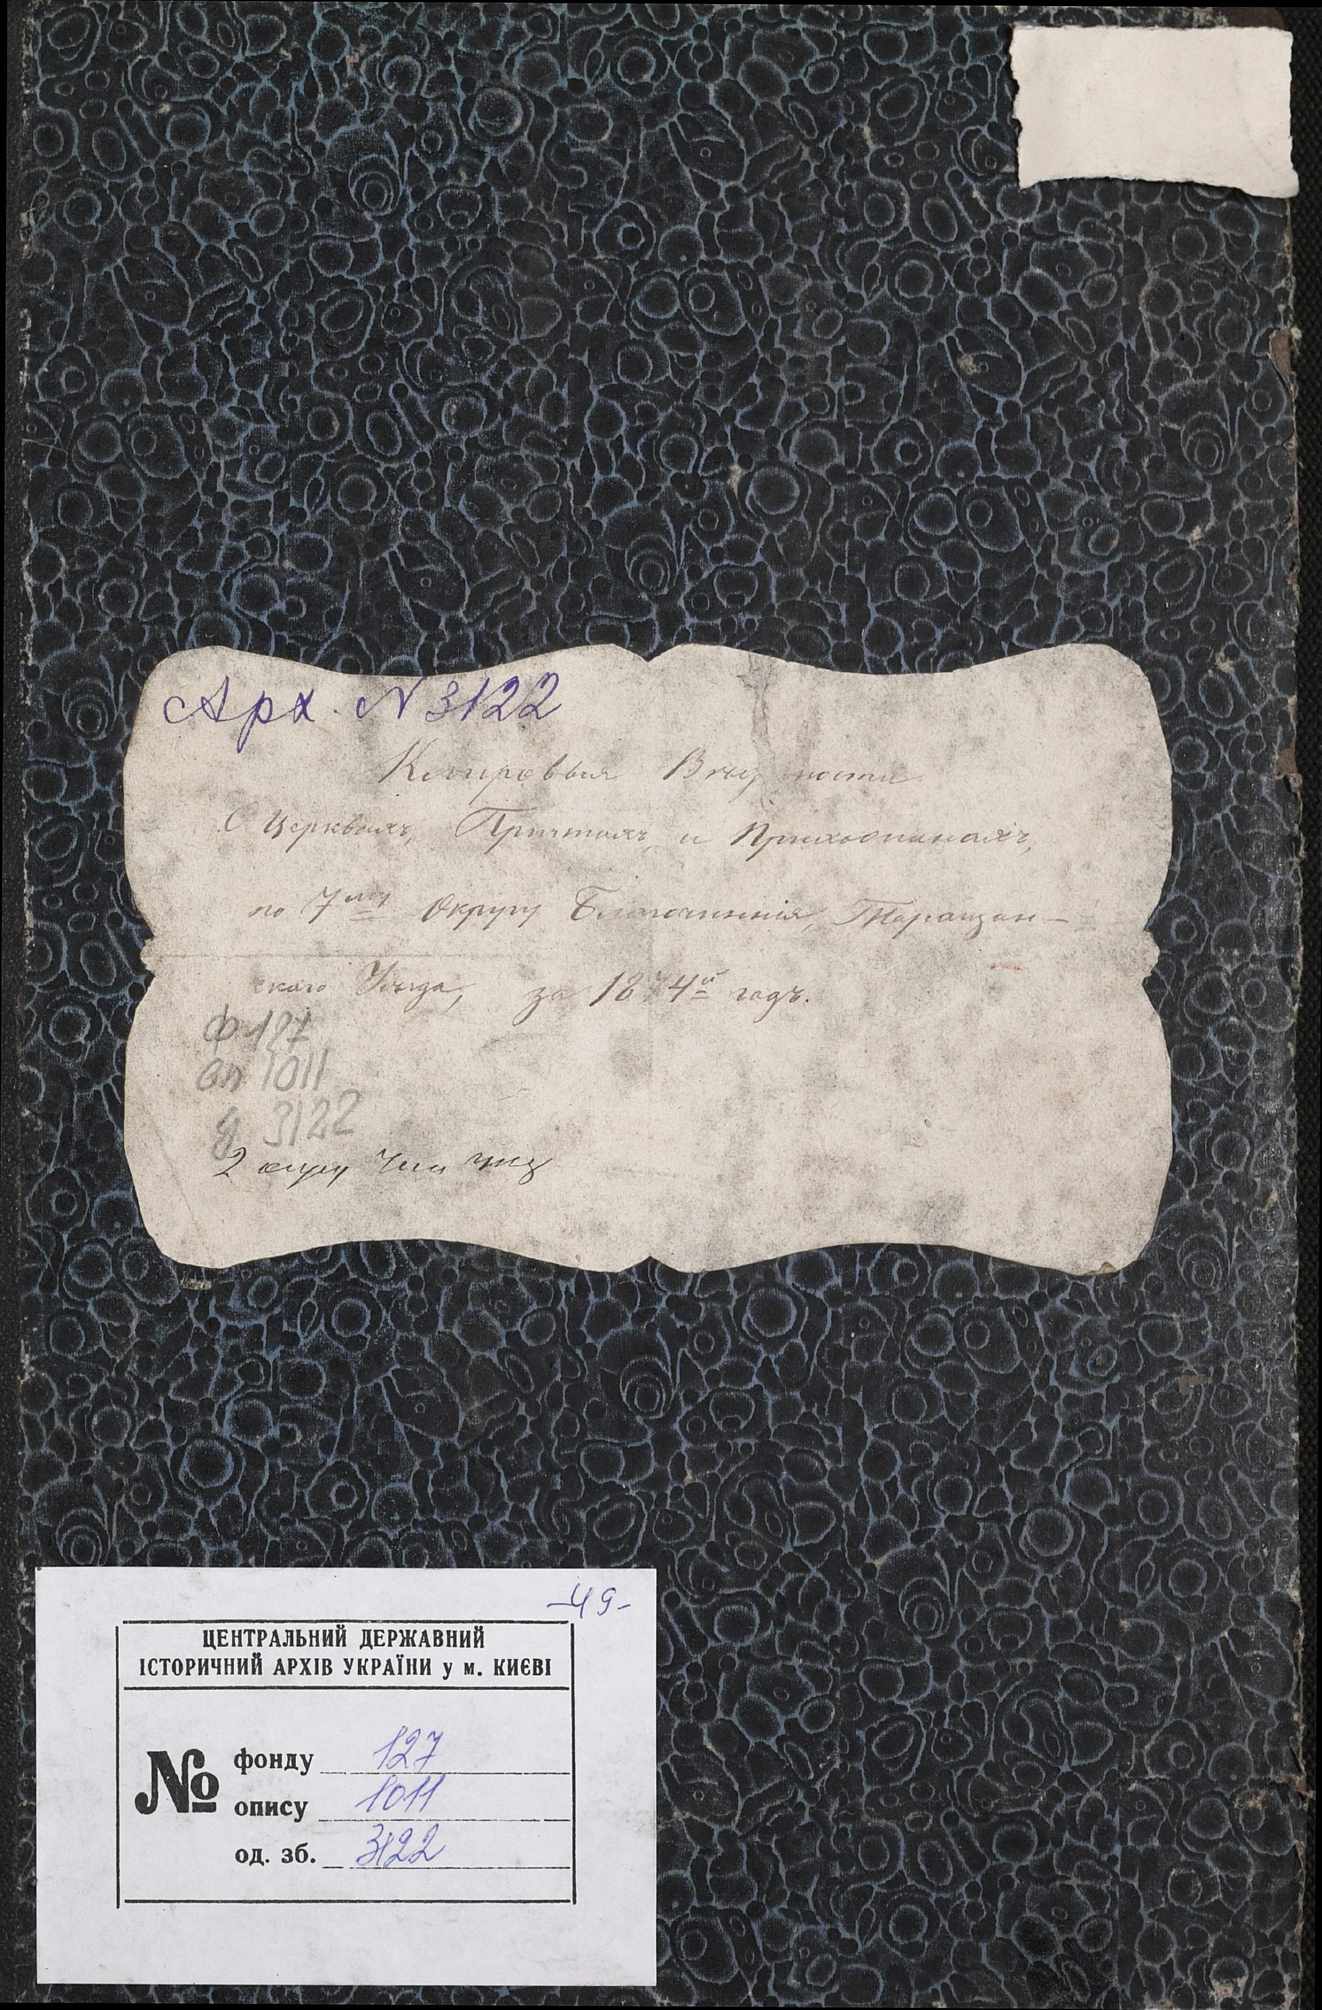 Арх. N 3122
Клировыя Вѣдомости
О Церквахъ, Причтахъ, и Прихожанахъ,
по 7му Округу Благочинія, Таращан-
скаго Уѣзда, за 1874й годъ.
ф 127
оп 1011
3122
2
-49-
ЦЕНТРАЛЬНИЙ ДЕРЖАВНИЙ
ІСТОРИЧНИЙ АРХІВ УКРАЇНИ у м. КИЄВІ
№
фонду 127
опису 1011
од. зб. 3122